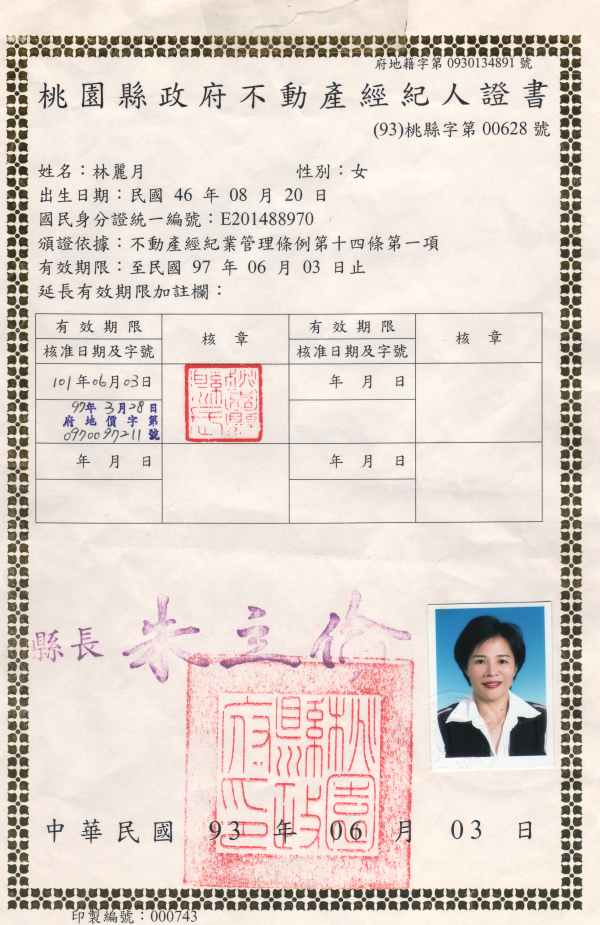 府地籍字第 0930134891 號
桃園縣政府不動產經紀人證書
(93)桃縣字第 00628 號
姓名：林麗月 性別：女
出生日期：民國 46 年 08 月 20 日
國民身分證統一編號：E201488970
頒證依據：不動產經紀業管理條例第十四條第一項
有效期限：至民國 97 年 06 月 03 日止
延長有效期限加註欄：
有效期限 核章 有效期限 核章
核准日期及字號 核准日期及字號
101年06月03日 年 月 日
97年3月28日
府地價字第
0970097211號
年 月 日 年 月 日
縣長 朱立倫
桃園縣政府印
中華民國 93 年 06 月 03 日
印製編號：000743